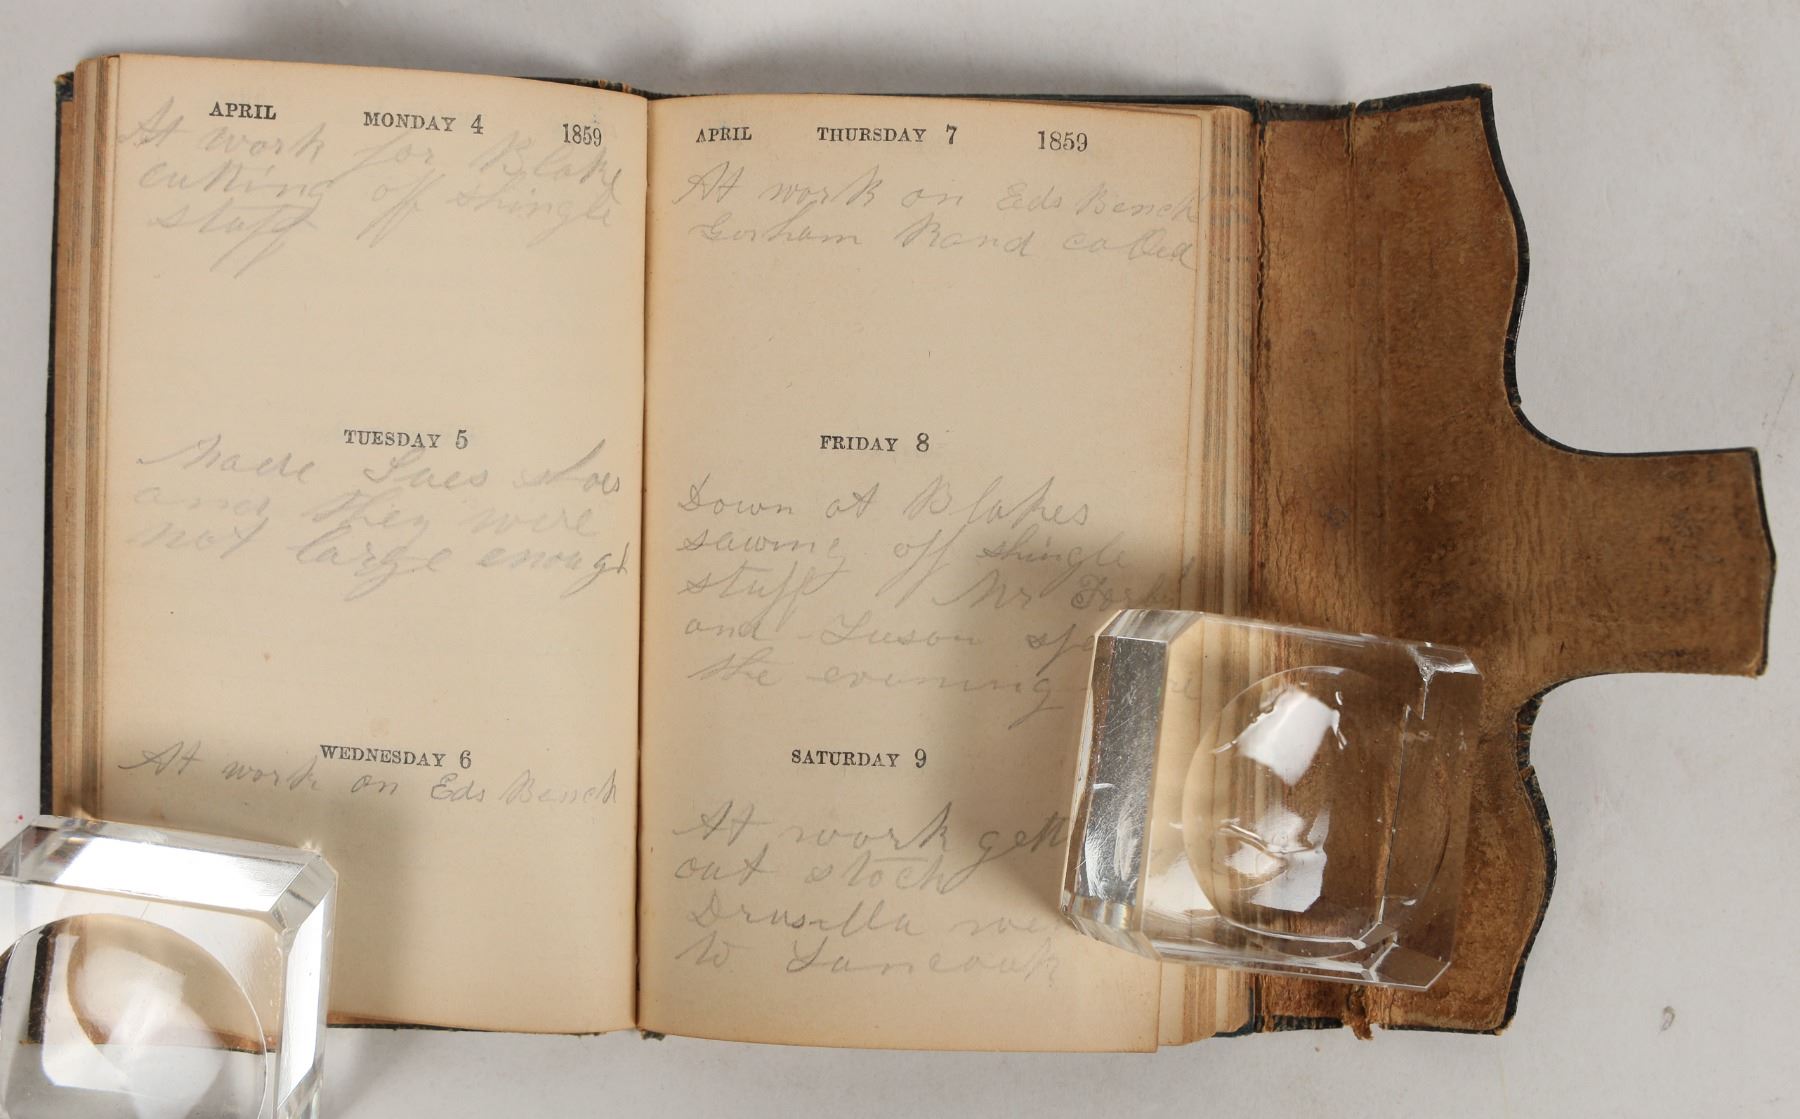 APRIL MONDAY 4 1859
At work for Blake
cutting off shingle
stuff
TUESDAY 5
Made Sues shoes
and they were
not large enough
WEDNESDAY 6
At work on Eds Bench
APRIL THURSDAY 7 1859
At work on Eds Bench
Gorham Rand called
FRIDAY 8
Down at Blakes
sawing off shingle
stuff Mr
and Susan
the evening
SATURDAY 9
At work
out stock
Drusilla
to Suncook